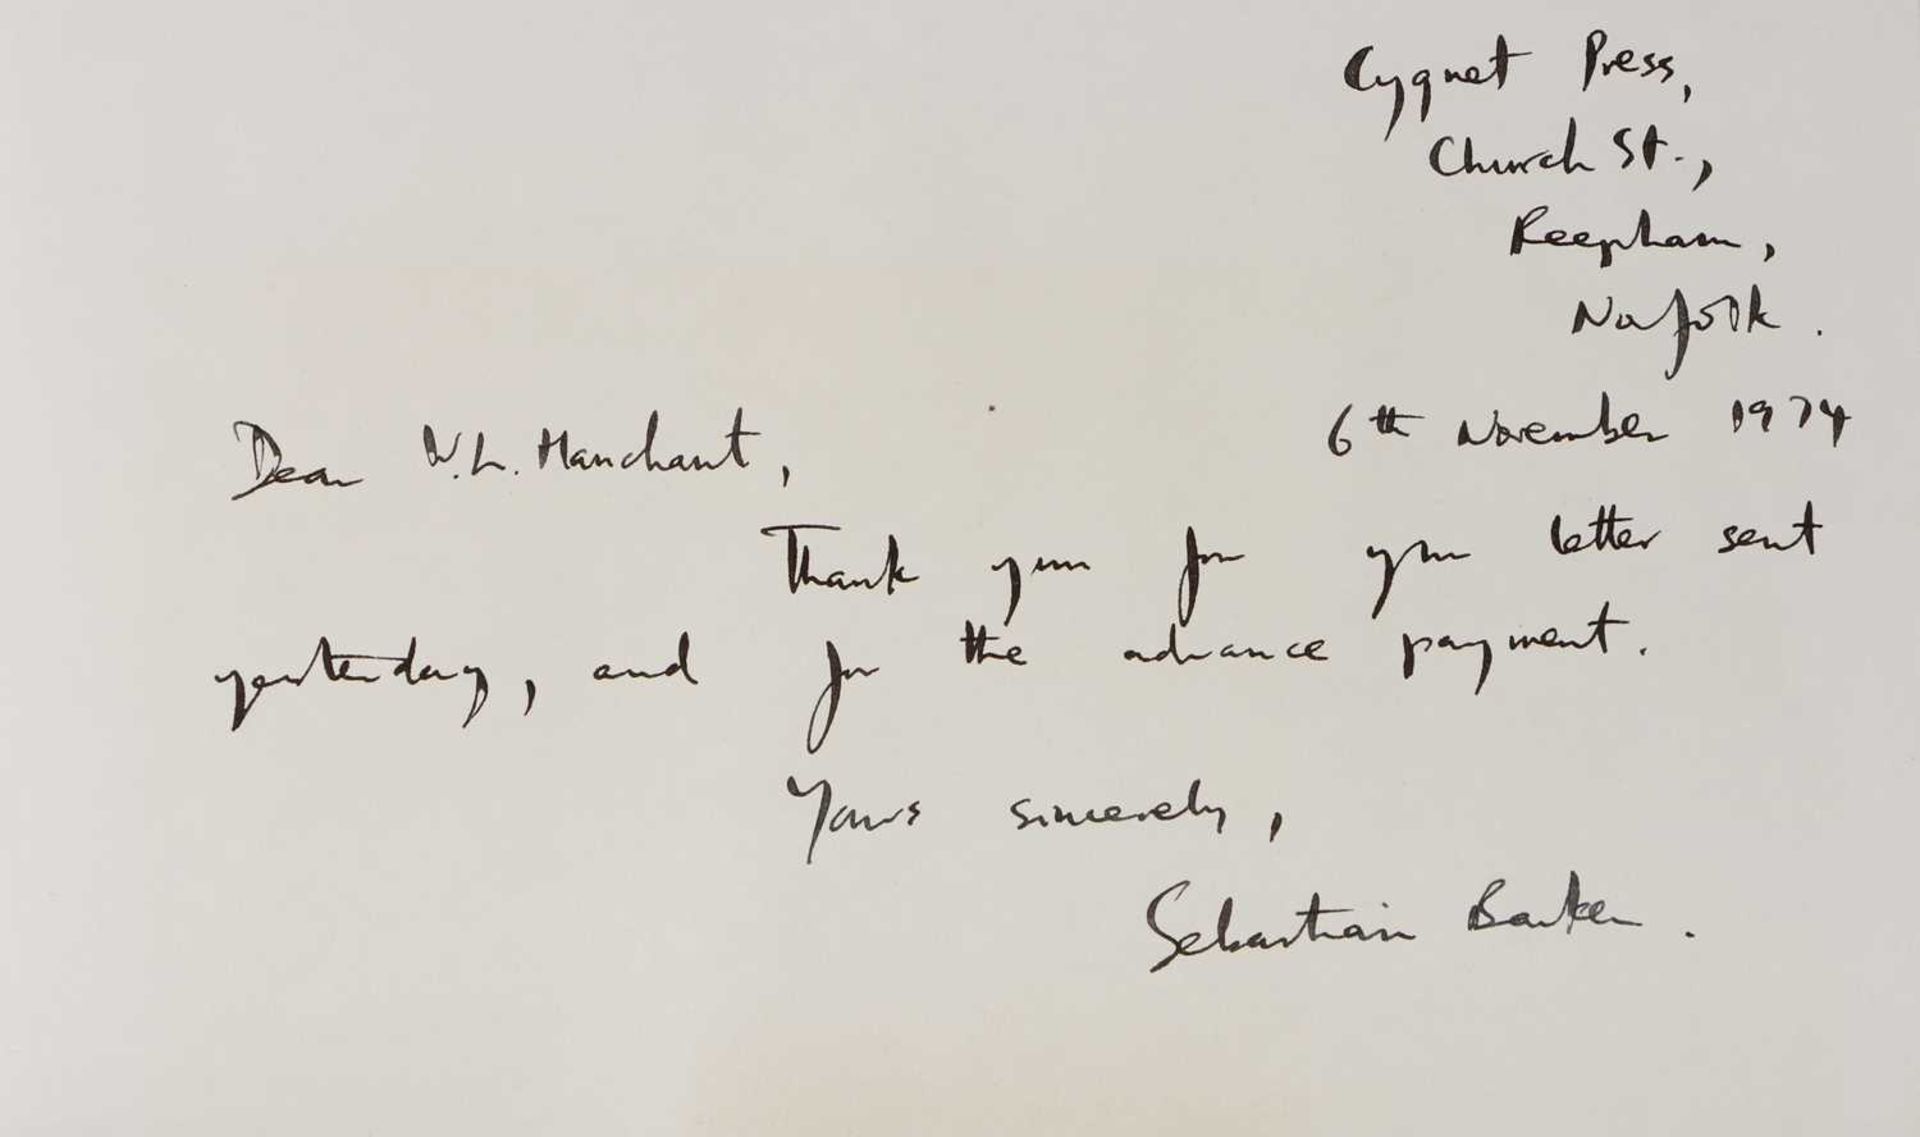 Cygnet Press,
Church St.,
Reepham,
Norfolk.
6th November 1974
Dear W.L. Marchant,
Thank you for your letter sent
yesterday, and for the advance payment.
Yours sincerely,
Sebastian Barker.